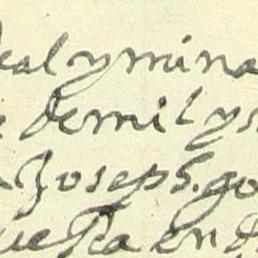 eal y mina
de mil y s
Joseph. go
uesta en